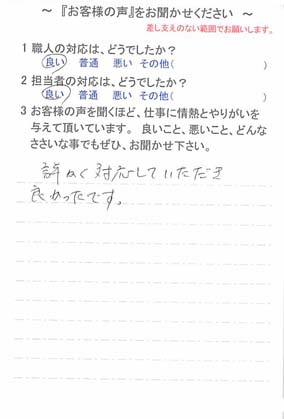 ～ 『お客様の声』をお聞かせください ～
差し支えのない範囲でお願いします。
1 職人の対応は、どうでしたか？
良い 普通 悪い その他( )
2 担当者の対応は、どうでしたか？
良い 普通 悪い その他( )
3 お客様の声を聞くほど、仕事に情熱とやりがいを
与えて頂いています。 良いこと、悪いこと、どんな
ささいな事でもぜひ、お聞かせ下さい。
詳しく対応していただき
良かったです。